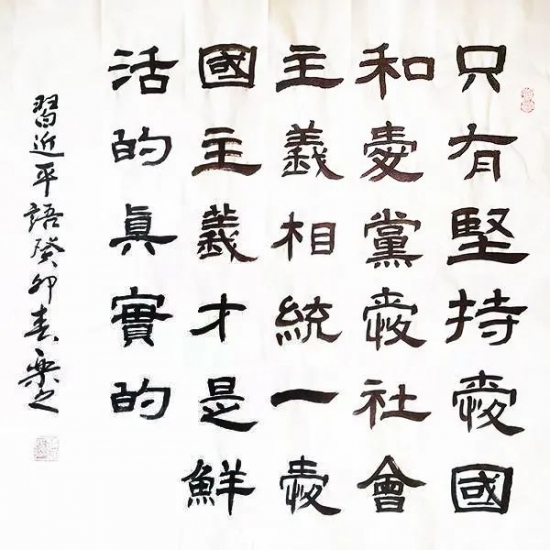 只有堅持愛國
和愛黨愛社會
主義相統一愛
國主義才是鮮
活的眞實的
習近平語癸卯春樂之